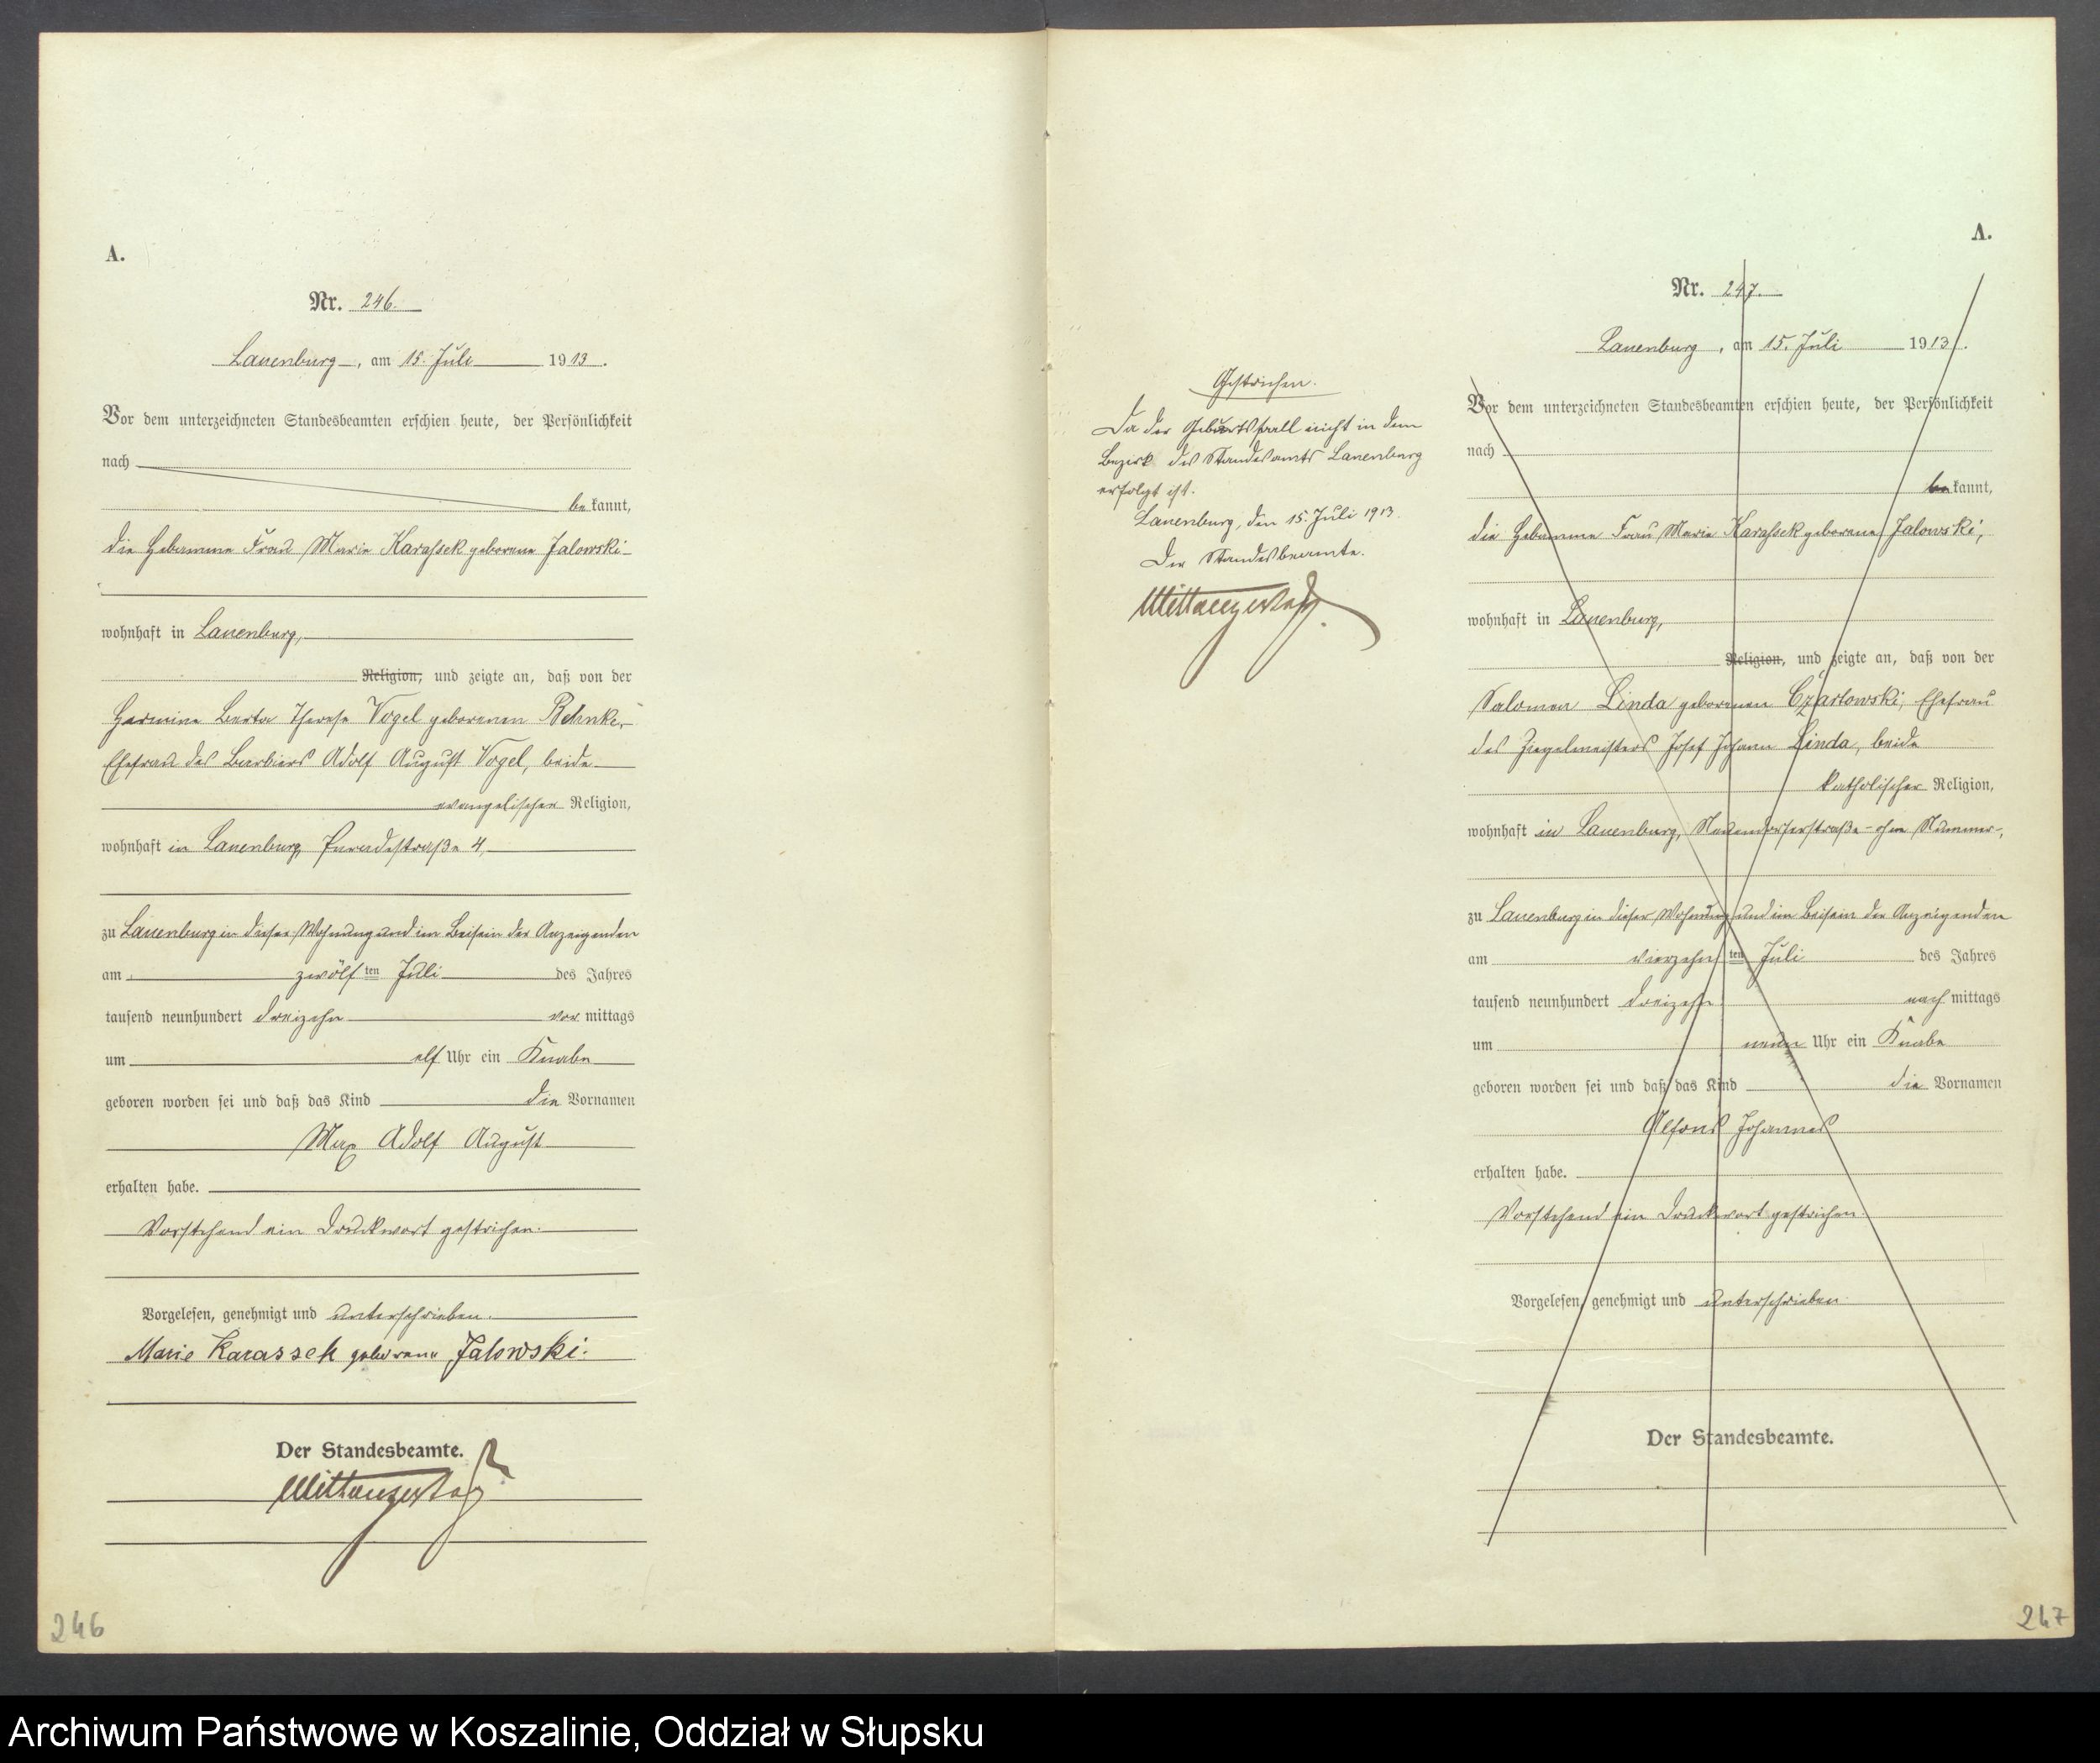 A.
Nr. 246.
Lauenburg, am 15. Juli 1913.
Vor dem unterzeichneten Standesbeamten erschien heute, der Persönlichkeit
nach
bekannt,
die Hebamme Frau Marie Karassek geborene Jalowski
wohnhaft in Lauenburg,
Religion, und zeigte an, daß von der
Hermine Berta Therese Vogel geborenen Behnke,
Ehefrau des Barbiers Adolf August Vogel, beide
evangelischer Religion,
wohnhaft in Lauenburg, Paradestraße 4,
zu Lauenburg in dieser Wohnung und im Beisein der Anzeigenden
am zwölf ten Juli des Jahres
tausend neunhundert dreizehn vor mittags
um elf Uhr ein Knabe
geboren worden sei und daß das Kind die Vornamen
Max Adolf August
erhalten habe.
Vorstehend ein Druckwort gestrichen.
Vorgelesen, genehmigt und unterschrieben.
Marie Karassek geborene Jalowski.
Der Standesbeamte.
246
Gestrichen.
Da der Geburtsfall nicht in dem
Bezirk des Standesamts Lauenburg
erfolgt ist.
Lauenburg, den 15. Juli 1913.
Der Standesbeamte.
A.
Nr. 247.
Lauenburg, am 15. Juli 1913.
Vor dem unterzeichneten Standesbeamten erschien heute, der Persönlichkeit
nach
bekannt,
die Hebamme Frau Marie Karassek geborene Jalowski,
wohnhaft in Lauenburg,
Religion, und zeigte an, daß von der
Salomea Linda geborenen Czarlowski, Ehefrau
des Ziegelmeisters Josef Johann Linda, beide
katholischer Religion,
wohnhaft in Lauenburg, Neuendorferstraße - ohne Nummer -,
zu Lauenburg in dieser Wohnung und im Beisein der Anzeigenden
am vierzehn ten Juli des Jahres
tausend neunhundert dreizehn nach mittags
um neun Uhr ein Knabe
geboren worden sei und daß das Kind die Vornamen
Alfons Johannes
erhalten habe.
Vorstehend ein Druckwort gestrichen.
Vorgelesen, genehmigt und unterschrieben.
Der Standesbeamte.
247
Archiwum Państwowe w Koszalinie, Oddział w Słupsku